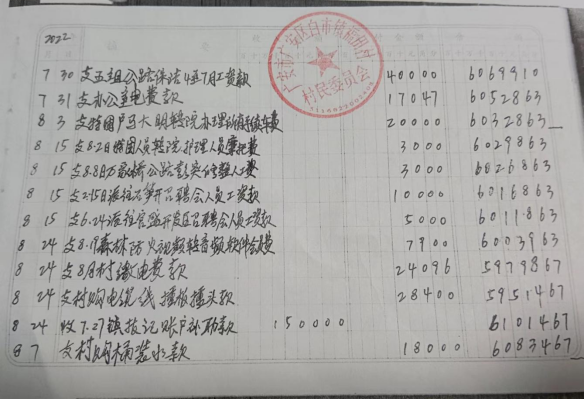 2022
广安市广安区白市镇 村
村民委员会
7 30 支五组公路保洁4至7月工资款 40000 6069910
7 31 支办公室电费款 17047 6052863
8 3 支特困户马大明转院办理 手续车费 20000 6032863
8 15 支8.2日特困人员转院护理人员 费 3000 6029863
8 15 支8.8日万 桥公路 人工费 3000 6026863
8 15 支2.15日派往 开召聘会人员工资款 10000 6016863
8 15 支6.24派往官盛开发区召聘会人员工资款 5000 6011863
8 24 支8.19森林防火视频转音频软件会员费 7900 6003963
8 24 支8月村缴电费款 24096 5979867
8 24 支村购电缆线 插板插头款 28400 5951467
8 24 收7.27镇 记账户补助款 150000 6101467
8 7 支村购桶装水款 18000 6083467